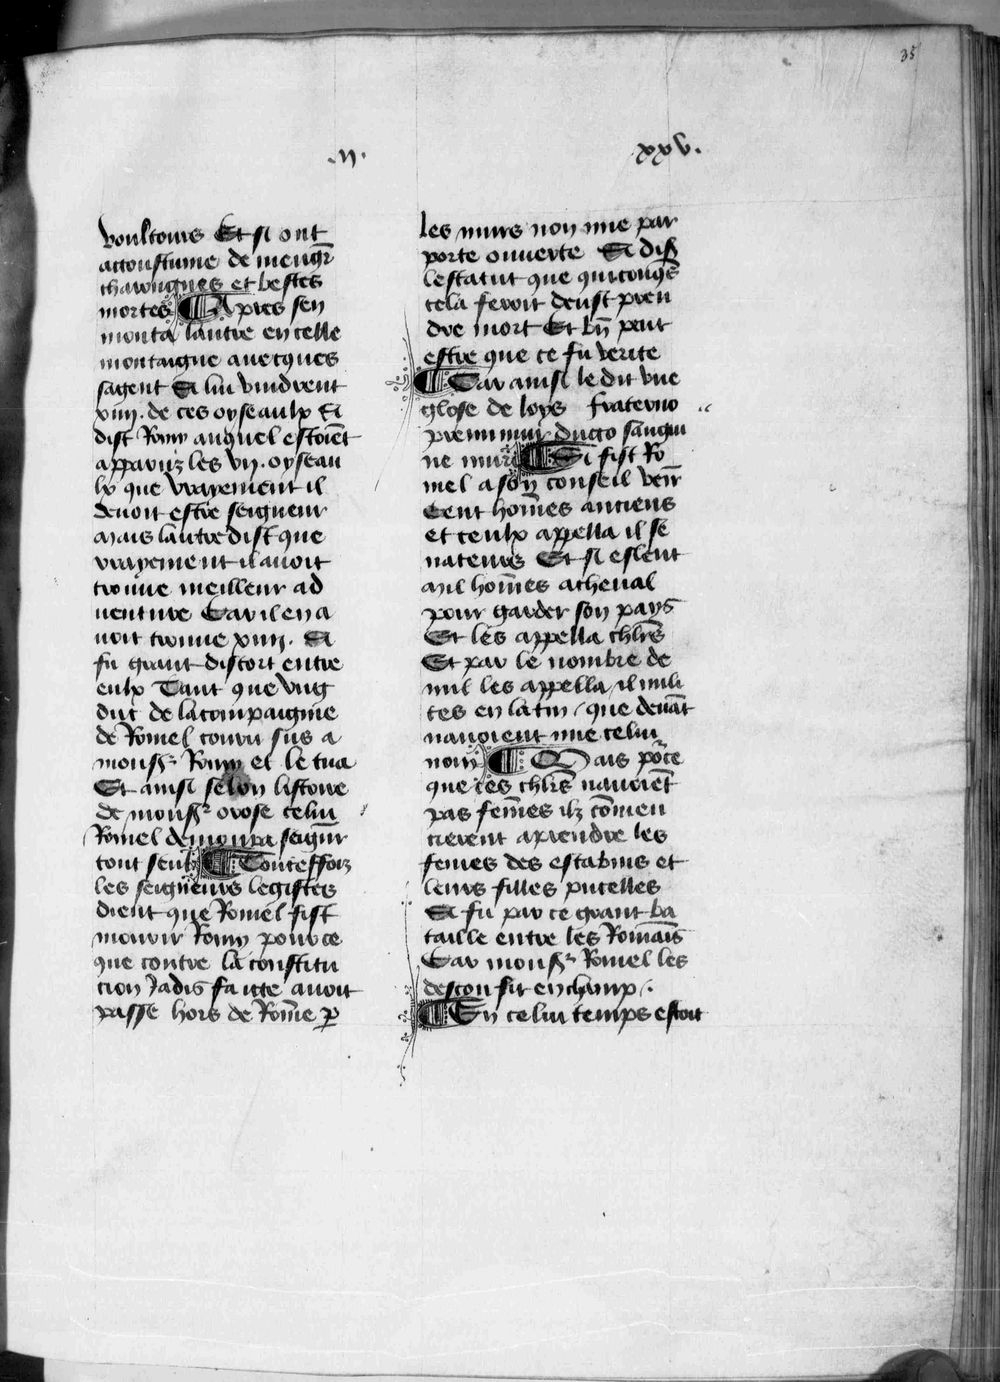 35
.II. xxv.
voultoirs Et si ont
acoustume de mengr̄
charongnes et bestes
mortes ¶ Apres sen
monta lautre en celle
montaigne auecques
sagent Et lui vindrent
xiiii. de ces oyseaulx Et
dist Romy auquel estoiēt
apparuz les vii. oyseau
lx que vrayement il
deuoit estre seigneur
Mais lautre dist que
vrayement il auoit
trouue meilleur ad
uenture Car il en a
uoit trouue xiiii. Et
fu grant discort entre
eulx Tant que vng
duc de la compaignie
de Romel couru sus a
mons.r Romy et le tua
Et ainsi selon listoire
de mons.r orose celui
Romel demoura seigur
tout seul ¶ Touteffoiz
les seigneurs legistes
dient que Romel fist
mourir Romy pour ce
que contre la constitu
cion Jadis faitte auoit
passe hors de Rom̄e p̱
les murs non mie par
porte ouuerte Et dist
lestatut que quiconqs̄
cela feroit deust pren
dre mort Et bn̄ peut
estre que ce fu verite
¶ Car ainsi le dit vne
glose de loys fraterno
primi mur ducto sangui
ne muri ¶ Si fist Ro
mel a son conseil venr̄
Cent hom̄es anciens
et ceulx appella il se
nateurs Et si esleut
mil hom̄es acheual
pour garder son pays
Et les appella chlr̄s
Et par le nombre de
mil les appella il mili
tes en latin / que deuāt
nauoient mie celui
nom ¶ Mais pōr ce
que ces chlr̄s nauoiēt
pas fem̄es ilz cōmen
cierent a prendre les
femes des estabins et
leurs filles pucelles
Et fu par ce grant ba
taille entre les Romāis
Car mons.r Romel les
desconfit en champ .
¶ En celui temps estoit